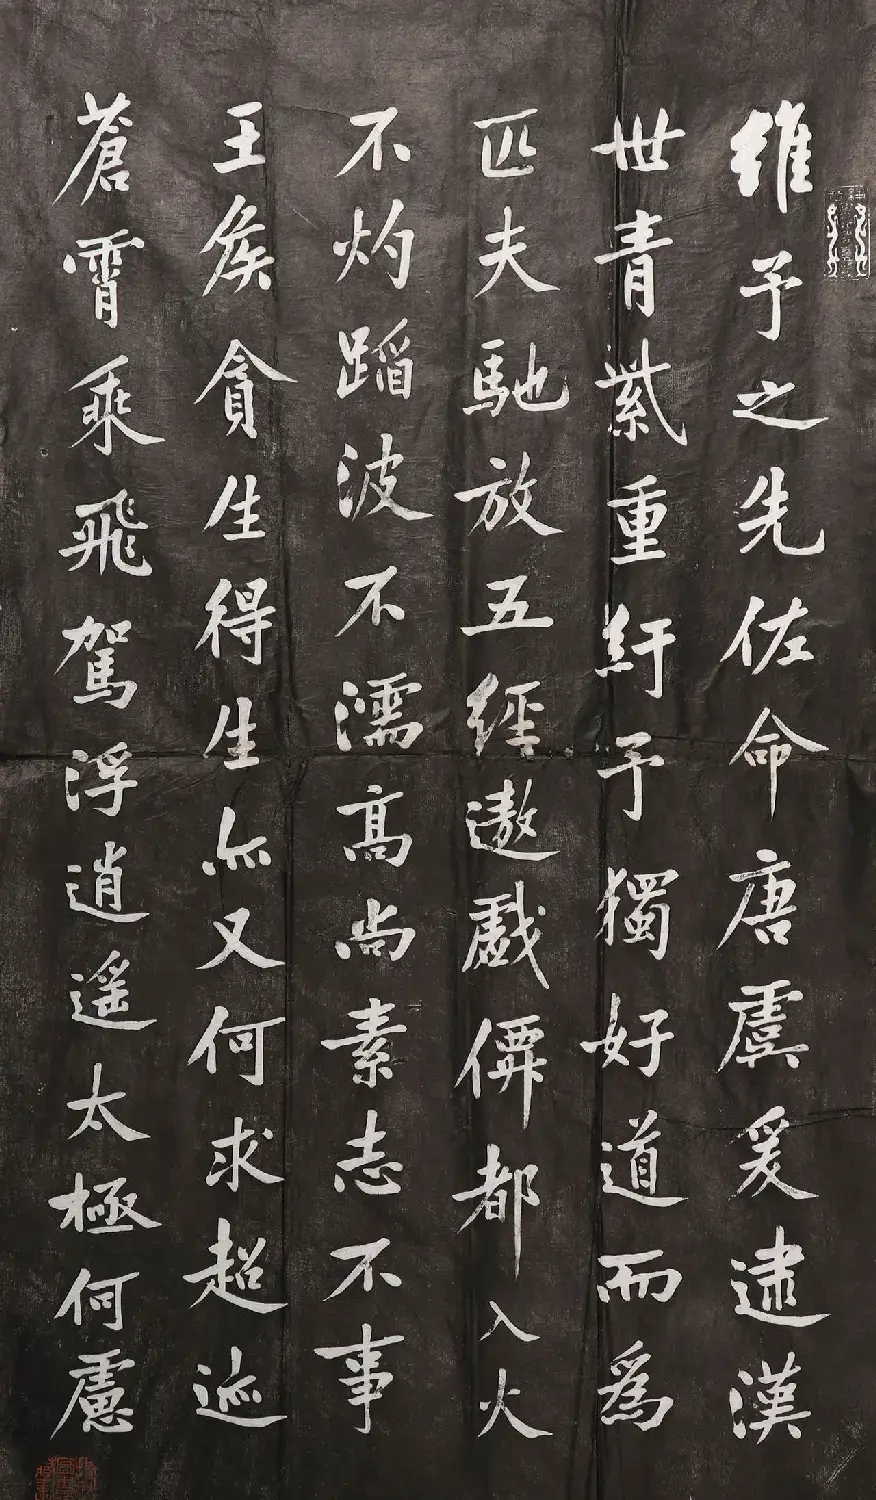 維予之先佐命唐虞爰逮漢
世青紫重紆予獨好道而為
匹夫馳放五經遨戲僊都入火
不灼蹈波不濡高尚素志不事
王矦貪生得生亦又何求超迹
蒼霄乘飛駕浮逍遥太極何慮